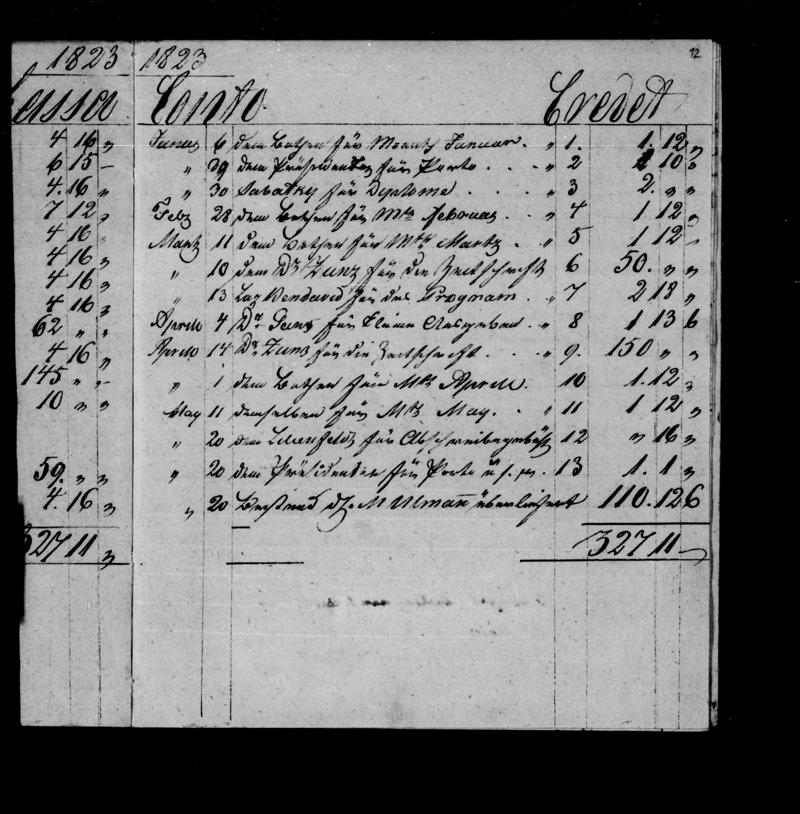 12
1823 1823
Cassa Conto Credit
4 16 " Januar 6 dem Bothen für Monath Januar . " 1. 1. 12 "
6 15 – " 29 dem Präsidenten für Porto . . . " 2 2 10 "
4. 16 " " 30 Sabatky für Dyplome . . . . " 3 2. " "
7 12 " Febr 28 dem Bothen für Mts Februar . . " 4 1 12 "
4 16 Martz 11 dem Bothen für Mts Martz . " 5 1 12 –
4 16 " " 10 dem Dr Zunz für die Zeitschrift 6 50. " "
4 16 " " 13 Laz Bendavid für das Program . " 7 2 18 "
4 16 " Aprill 4 Dr Gans für kleine Ausgaben . " 8 1 13 6
62 " " Aprill 14 Dr Zunz für die Zeitschrift . . . " 9. 150 " "
4 16 " " 1 dem Bothen für Mts Aprill . 10 1. 12 "
145 " – May 11 demselben für Mts May . " 11 1 12 "
10 " " " 20 dem Lilienfeld für Abschreibegebühr 12 " 16 "
59. " " " 20 dem Präsidenten für Porto u. s. w. 13 1. 1 "
4. 16 " " 20 Bestand M Ulmann überliefert 110. 12 6
327 11 " 327 11 –